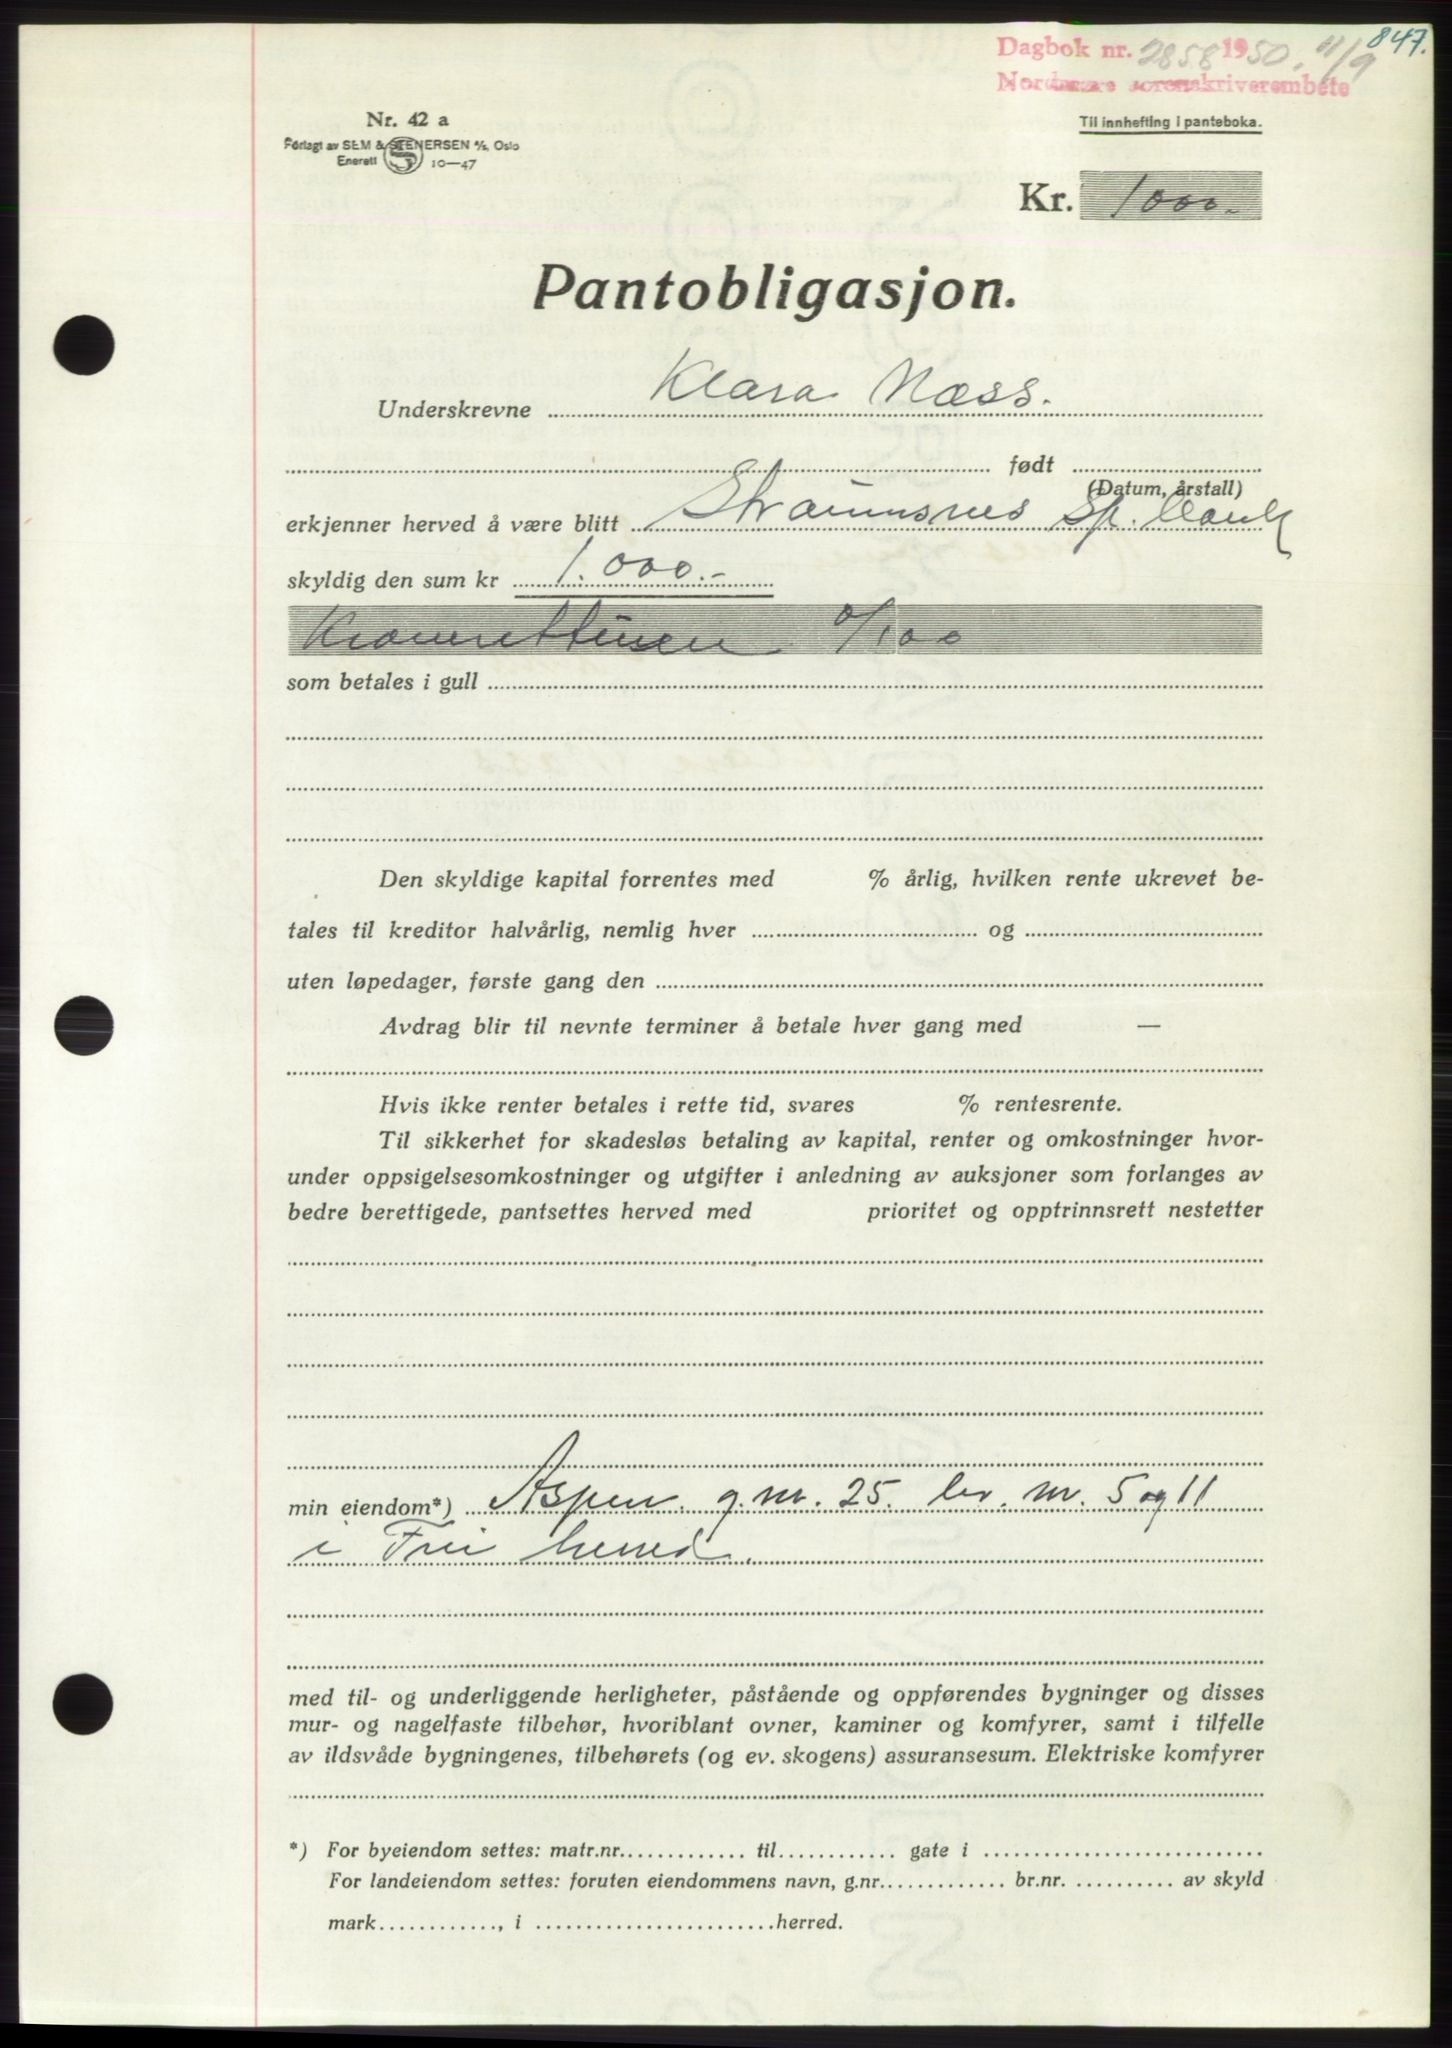 847.
Dagbok nr. 2858 1950. 11/9
Nordmøre sorenskriverembete
Nr. 42 a
Til innhefting i panteboka.
Forlagt av SEM & STENERSEN A/S, Oslo
Enerett S 10—47
Kr. 1000.-
Pantobligasjon.
Underskrevne Klara Næss.
født
(Datum, årstall)
erkjenner herved å være blitt Straumsnes Sp. bank
skyldig den sum kr 1.000.-
Kroner ettusen 0/100
som betales i gull
Den skyldige kapital forrentes med % årlig, hvilken rente ukrevet be-
tales til kreditor halvårlig, nemlig hver og
uten løpedager, første gang den
Avdrag blir til nevnte terminer å betale hver gang med —
Hvis ikke renter betales i rette tid, svares % rentesrente.
Til sikkerhet for skadesløs betaling av kapital, renter og omkostninger hvor-
under oppsigelsesomkostninger og utgifter i anledning av auksjoner som forlanges av
bedre berettigede, pantsettes herved med prioritet og opptrinnsrett nestetter
min eiendom*) Aspen g.nr. 25. br. nr. 5 og 11
i Frei herred.
med til- og underliggende herligheter, påstående og oppførendes bygninger og disses
mur- og nagelfaste tilbehør, hvoriblant ovner, kaminer og komfyrer, samt i tilfelle
av ildsvåde bygningenes, tilbehørets (og ev. skogens) assuransesum. Elektriske komfyrer
*) For byeiendom settes: matr.nr............. til............ gate i ............................
For landeiendom settes: foruten eiendommens navn, g.nr............. br.nr. .......... av skyld
mark............, i ........................herred.